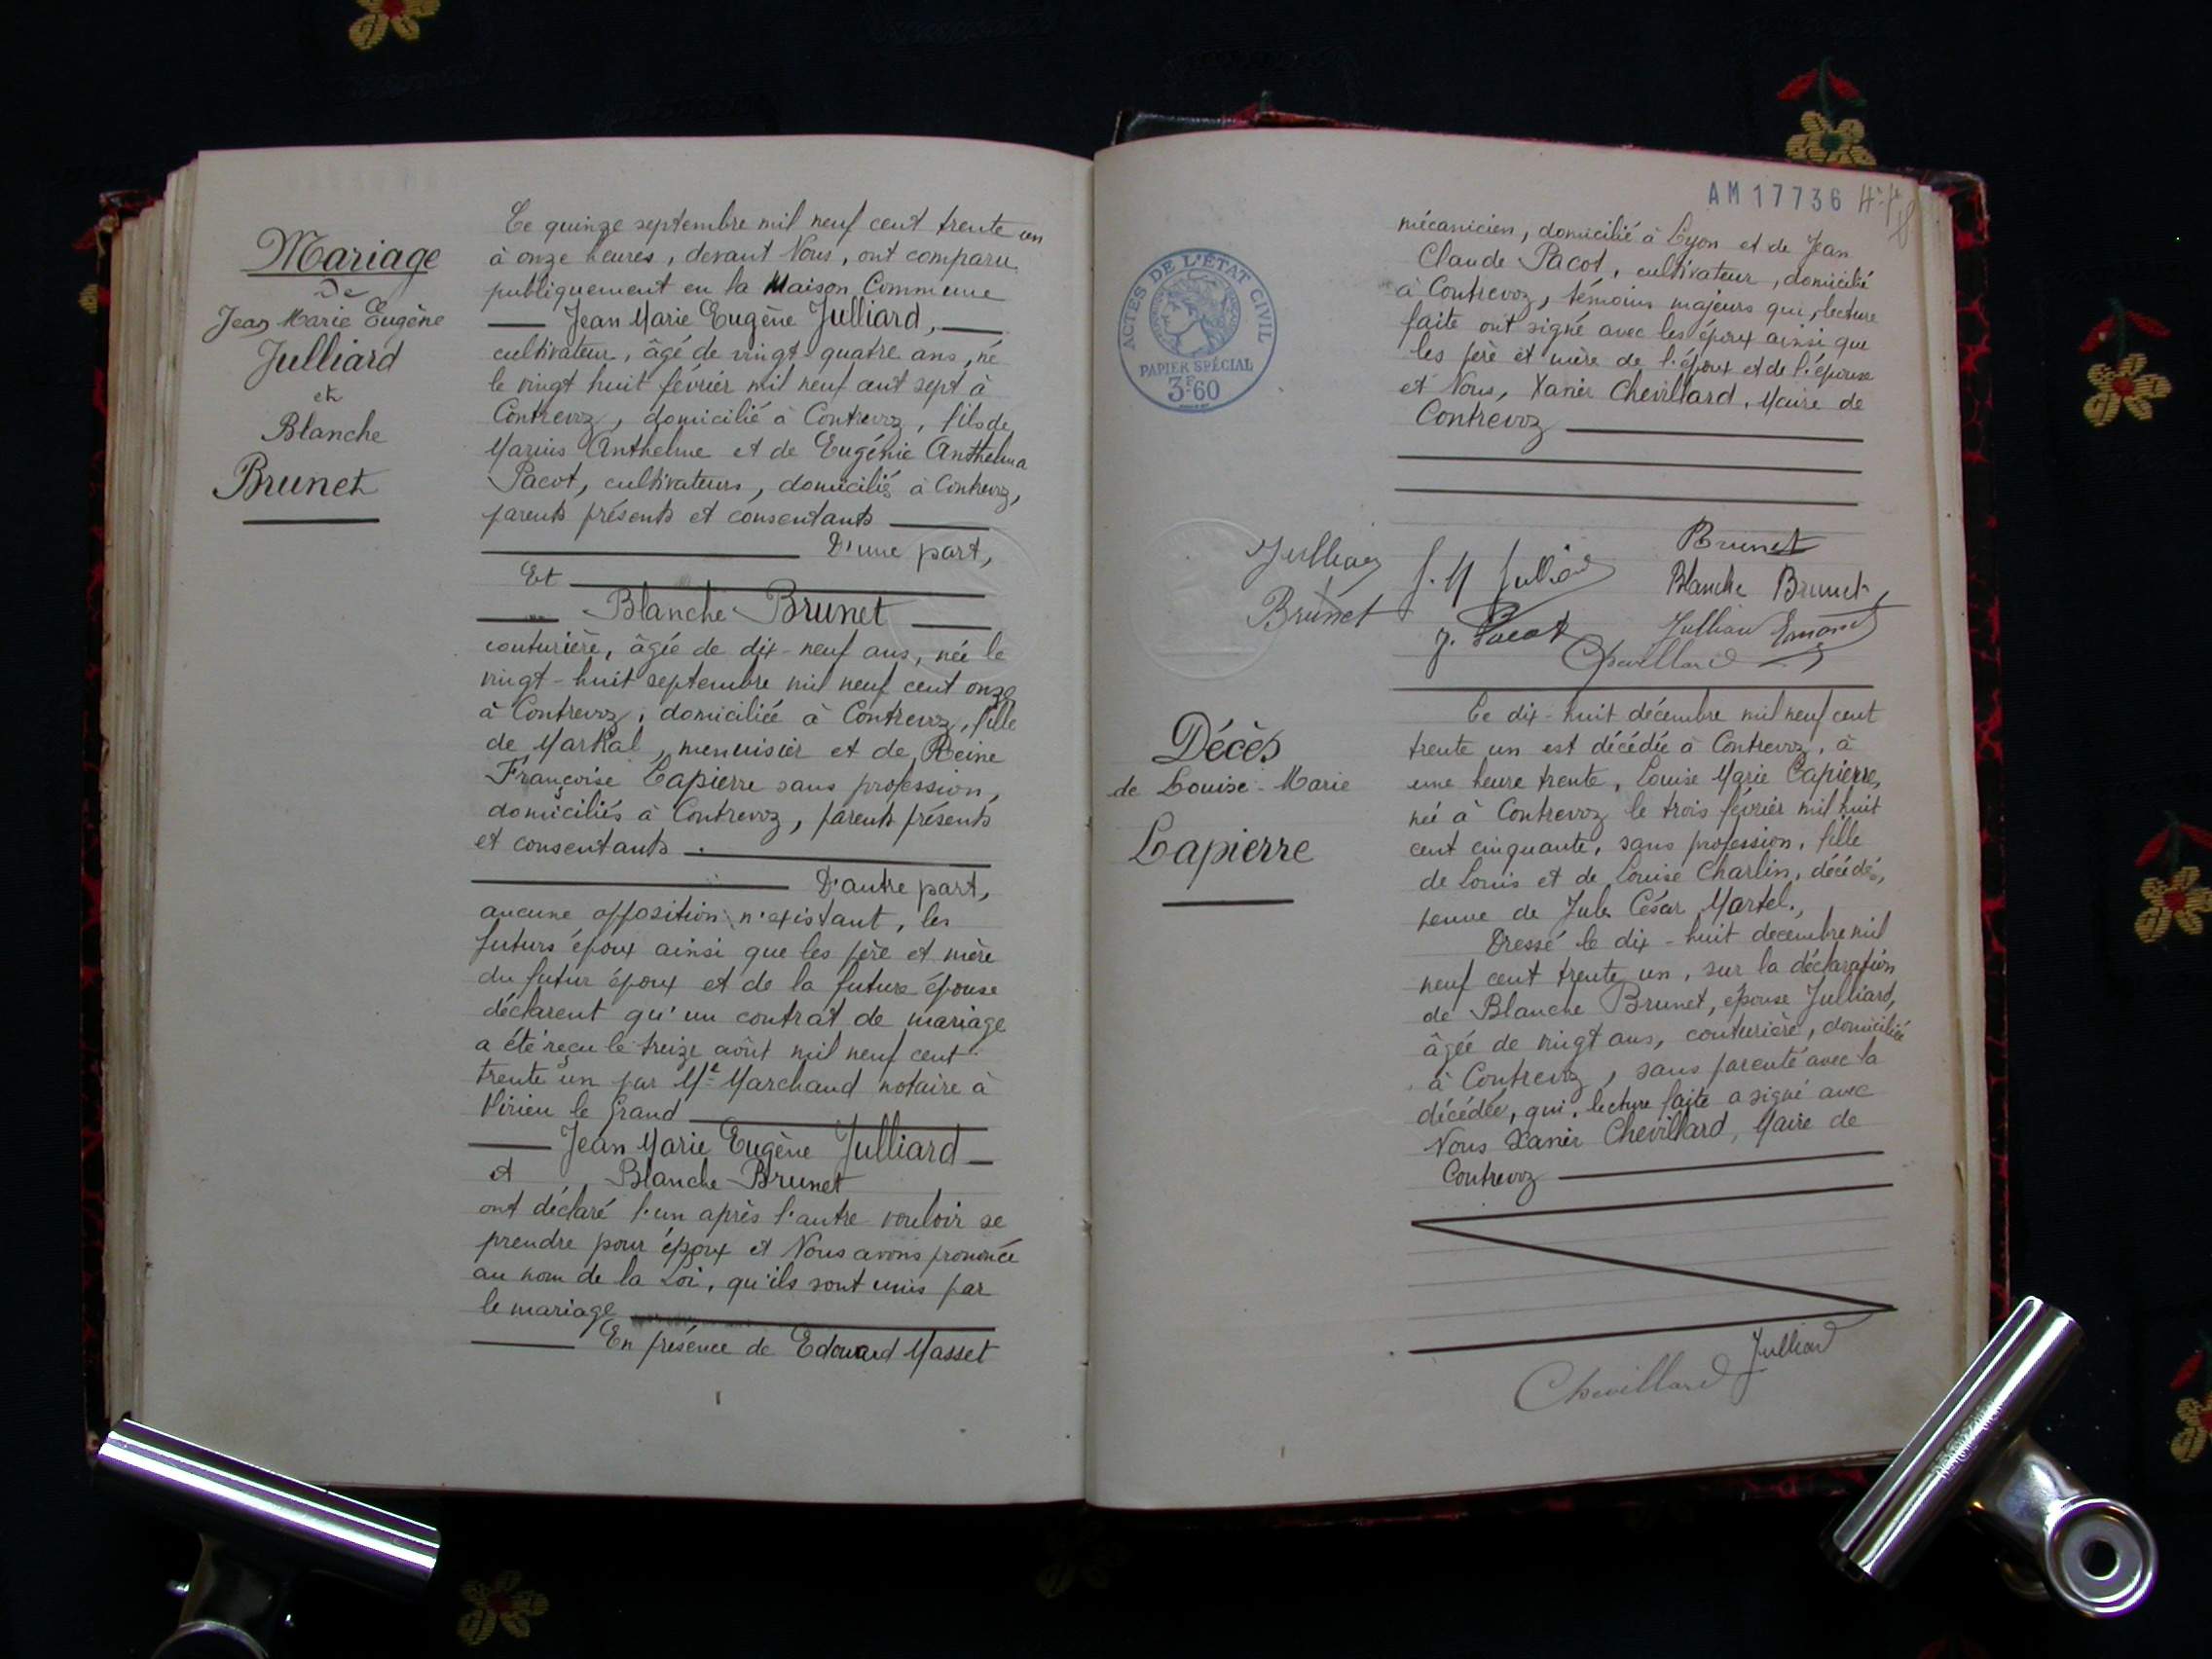 Mariage
De
Jean Marie Eugène
Julliard
et
Blanche
Brunet
Le quinze septembre mil neuf cent trente un
à onze heures, devant Nous, ont comparu
publiquement en la Maison Commune
Jean Marie Eugène Julliard,
cultivateur, âgé de vingt-quatre ans, né
le vingt huit février mil neuf cent sept à
Contrevoz, domicilié à Contrevoz, fils de
Marius Anthelme et de Eugénie Anthelma
Pacot, cultivateurs, domiciliés à Contrevoz,
parents présents et consentants
D'une part,
Et
Blanche Brunet
couturière, âgée de dix-neuf ans, née le
vingt-huit septembre mil neuf cent onze
à Contrevoz, domiciliée à Contrevoz, fille
de Martial, menuisier et de Reine
Françoise Lapierre sans profession,
domiciliés à Contrevoz, parents présents
et consentants.
D'autre part,
aucune opposition n'existant, les
futurs époux ainsi que les père et mère
du futur époux et de la future épouse
déclarent qu'un contrat de mariage
a été reçu le treize août mil neuf cent
trente un par Me Marchand notaire à
Virieu le Grand
Jean Marie Eugène Julliard
et Blanche Brunet
ont déclaré l'un après l'autre vouloir se
prendre pour époux et Nous avons prononcé
au nom de la Loi, qu'ils sont unis par
le mariage
En présence de Edouard Masset
AM 17736
ACTES DE L'ÉTAT CIVIL
PAPIER SPÉCIAL
3F60
mécanicien, domicilié à Lyon et de Jean
Claude Pacot, cultivateur, domicilié
à Contrevoz, témoins majeurs qui, lecture
faite ont signé avec les époux ainsi que
les père et mère de l'époux et de l'épouse
et Nous, Xavier Chevillard, Maire de
Contrevoz
Brunet
Julliard J. M Julliard
Blanche Brunet
Brunet
J. Pacot
Julliard
Chevillard
Décès
de Louise-Marie
Lapierre
Le dix-huit décembre mil neuf cent
trente un est décédée à Contrevoz, à
une heure trente, Louise Marie Lapierre,
née à Contrevoz le trois février mil huit
cent cinquante, sans profession, fille
de Louis et de Louise Charlin, décédés,
veuve de Jules César Martel.,
Dressé le dix-huit decembre mil
neuf cent trente un, sur la déclaration
de Blanche Brunet, épouse Julliard,
âgée de vingt ans, couturière, domiciliée
à Contrevoz, sans parenté avec la
décédée, qui, lecture faite a signé avec
Nous Xavier Chevillard, Maire de
Contrevoz
Julliard
Chevillard